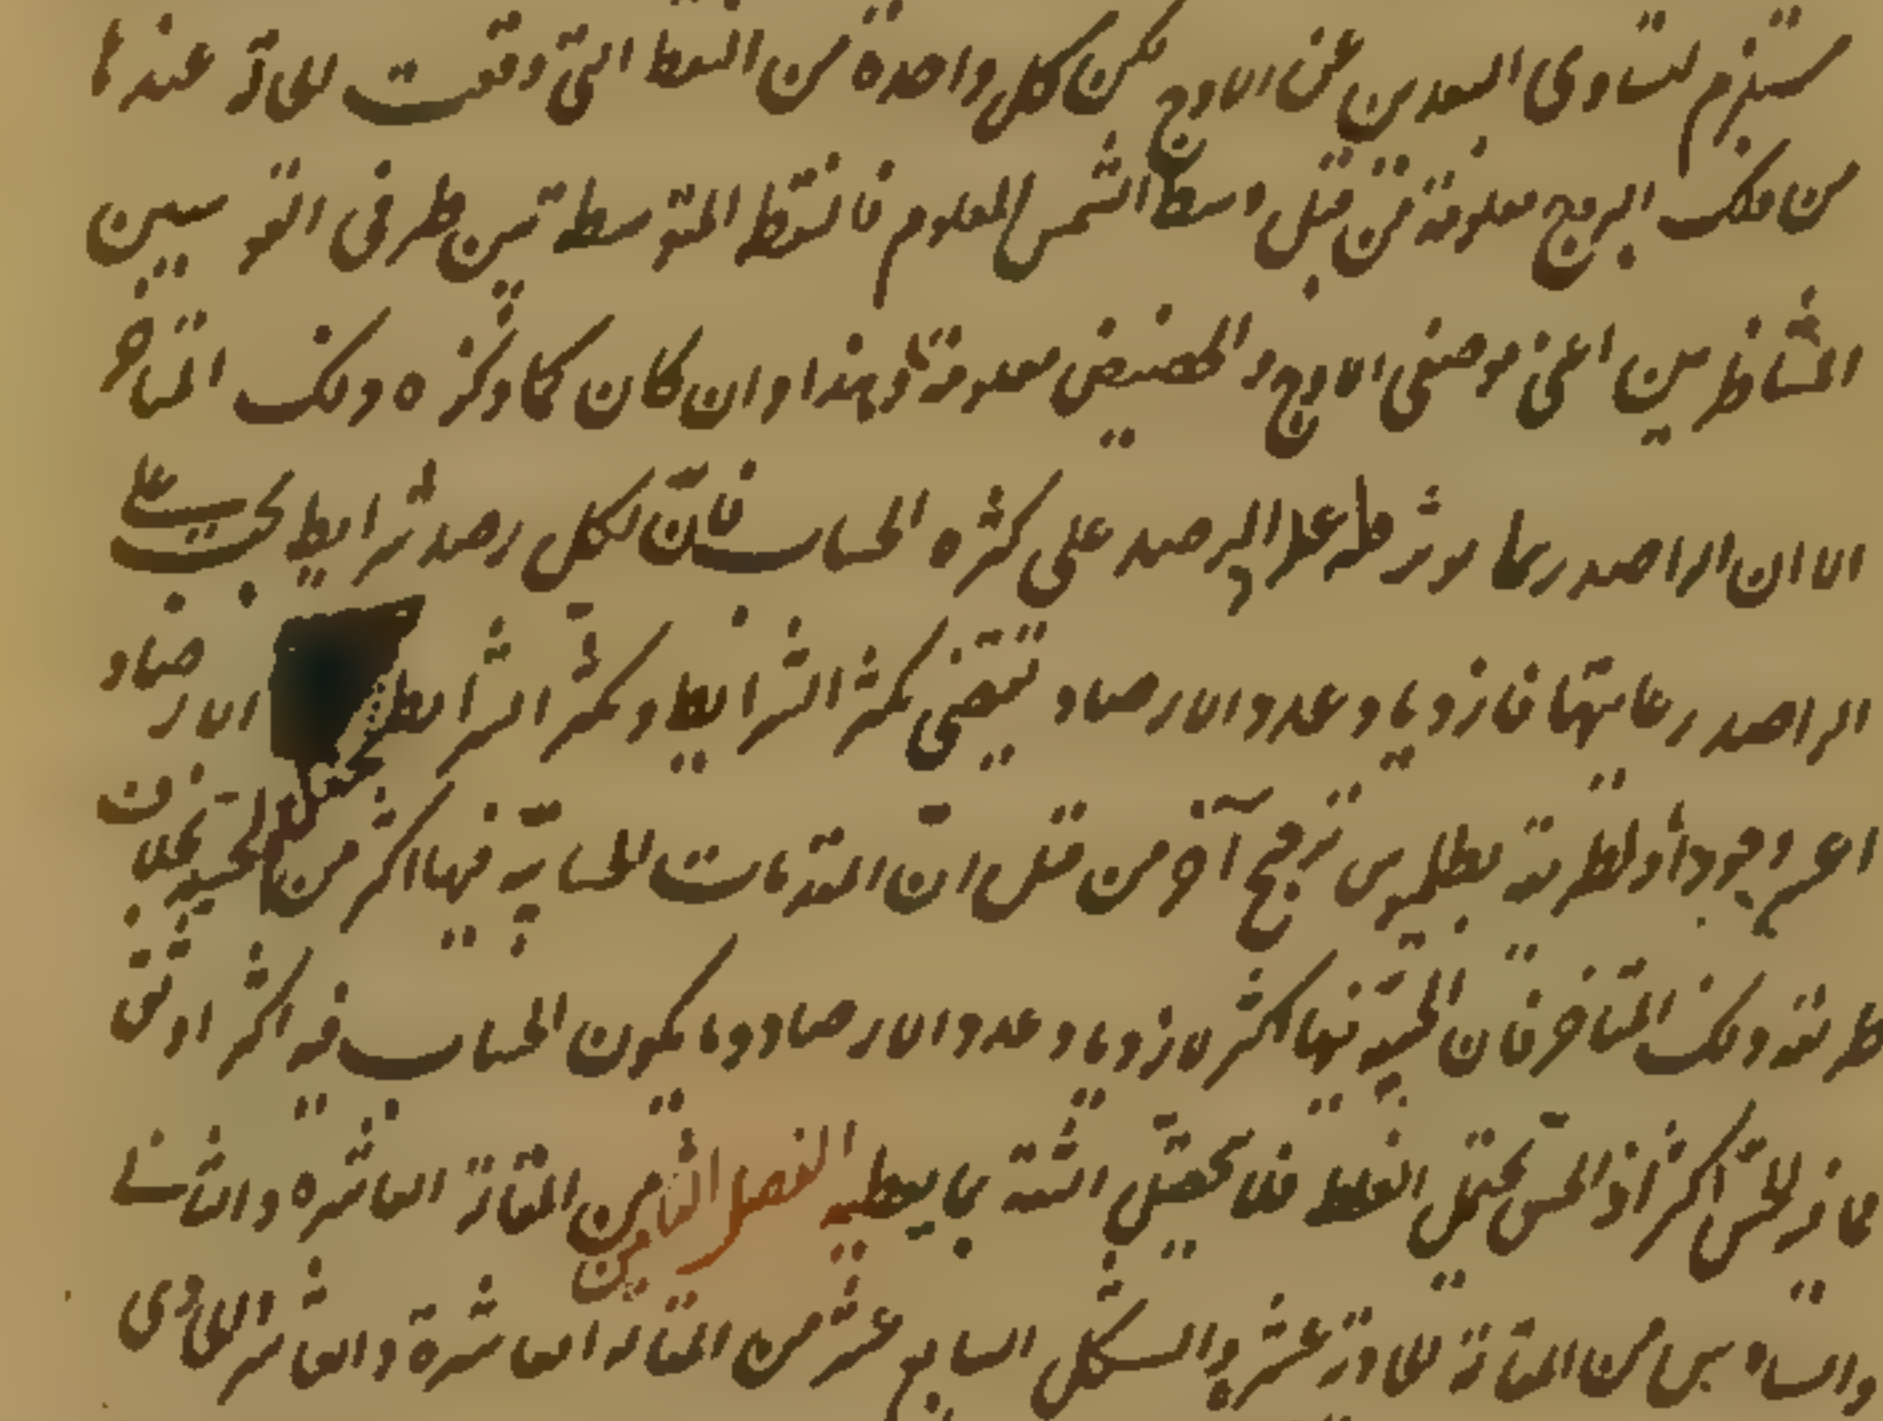 مستلزم لتساوى البعدين عن الاوج لكن كل واحدة من النقط التى وقعت المحاذاة عندها
من فلك البروج معلومة من قبل وسط الشمس المعلوم فالنقط المتوسطة بين طرفى القوسين
المتناظرين اعنى موضعى الاوج والحضيض معلومة وهذا وان كان كما ذكره ذلك المتاخر
الا ان الراصد ربما يوثر على الرصد على كثرة الحساب فان لكل رصد شرايط يجب على
الراصد رعايتها فازدياد عدد الارصاد يقتضى تكثر الشرايط وتكثر الشرايط الارصاد
اعسر وجودا ولطريقة بطلميوس ترجيح آخر من قبل ان المقدمات الحسابية فيها اكثر من الحسية بخلاف
طريقة ذلك المتاخر فان الحسية فيها اكثر لازدياد عدد الارصاد وما يكون الحساب فيه اكثر اوثق
مما فيه الحس اكثر اذ الحس يحتمل الغلط فلا يحصل الثقة بما يعطيه الفصل الثامن من المقالة العاشرة والثامن
والسادس من المقالة الحادية عشر والشكل السابع عشر من المقالة العاشرة والعاشر الحادى